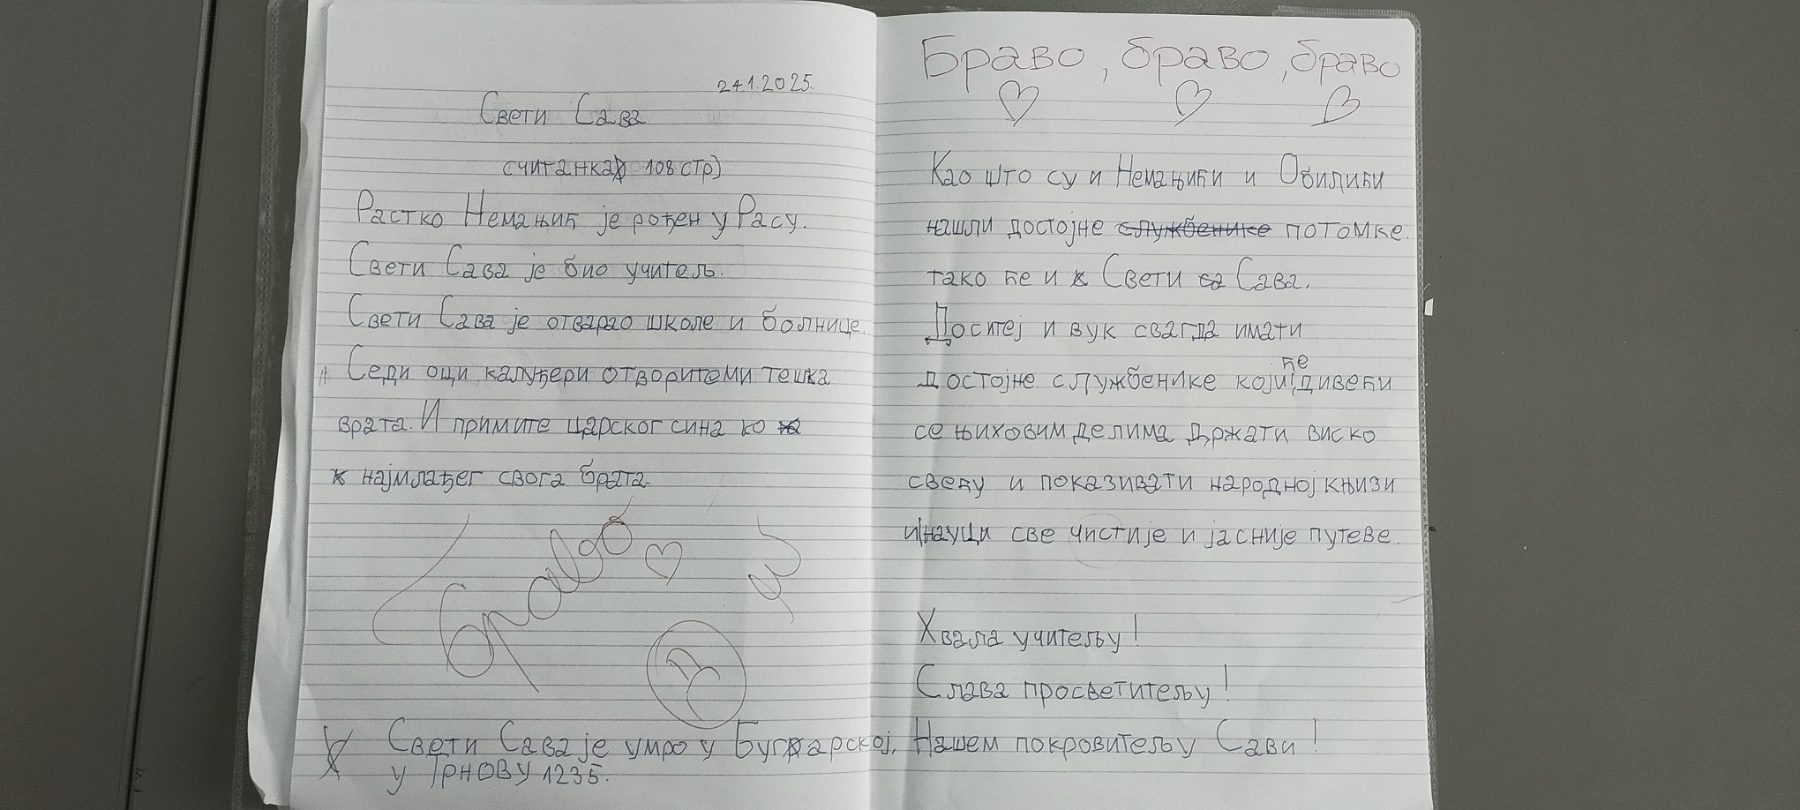 24.1.2025.
Свети Сава
(читанка 108 стр)
Растко Немањић је рођен у Расу.
Свети Сава је био учитељ.
Свети Сава је отварао школе и болнице.
Седи оци калуђери отворитеми тешка
врата. И примите царског сина ко
најмлађег свога брата.
браво
Свети Сава је умро у Бугарској,
у Трнову 1235.
Браво, браво, браво
Као што су и Немањићи и Обилићи
нашли достојне службенике потомке.
тако ће и Свети са Сава.
Доситеј и вук свагда имати
достојне службенике који ће дивећи
се њиховим делима држати виско
свећу и показивати народној књизи
и науци све чистије и јасније путеве.
Хвала учитељу!
Слава просветитељу!
Нашем покровитељу Сави!